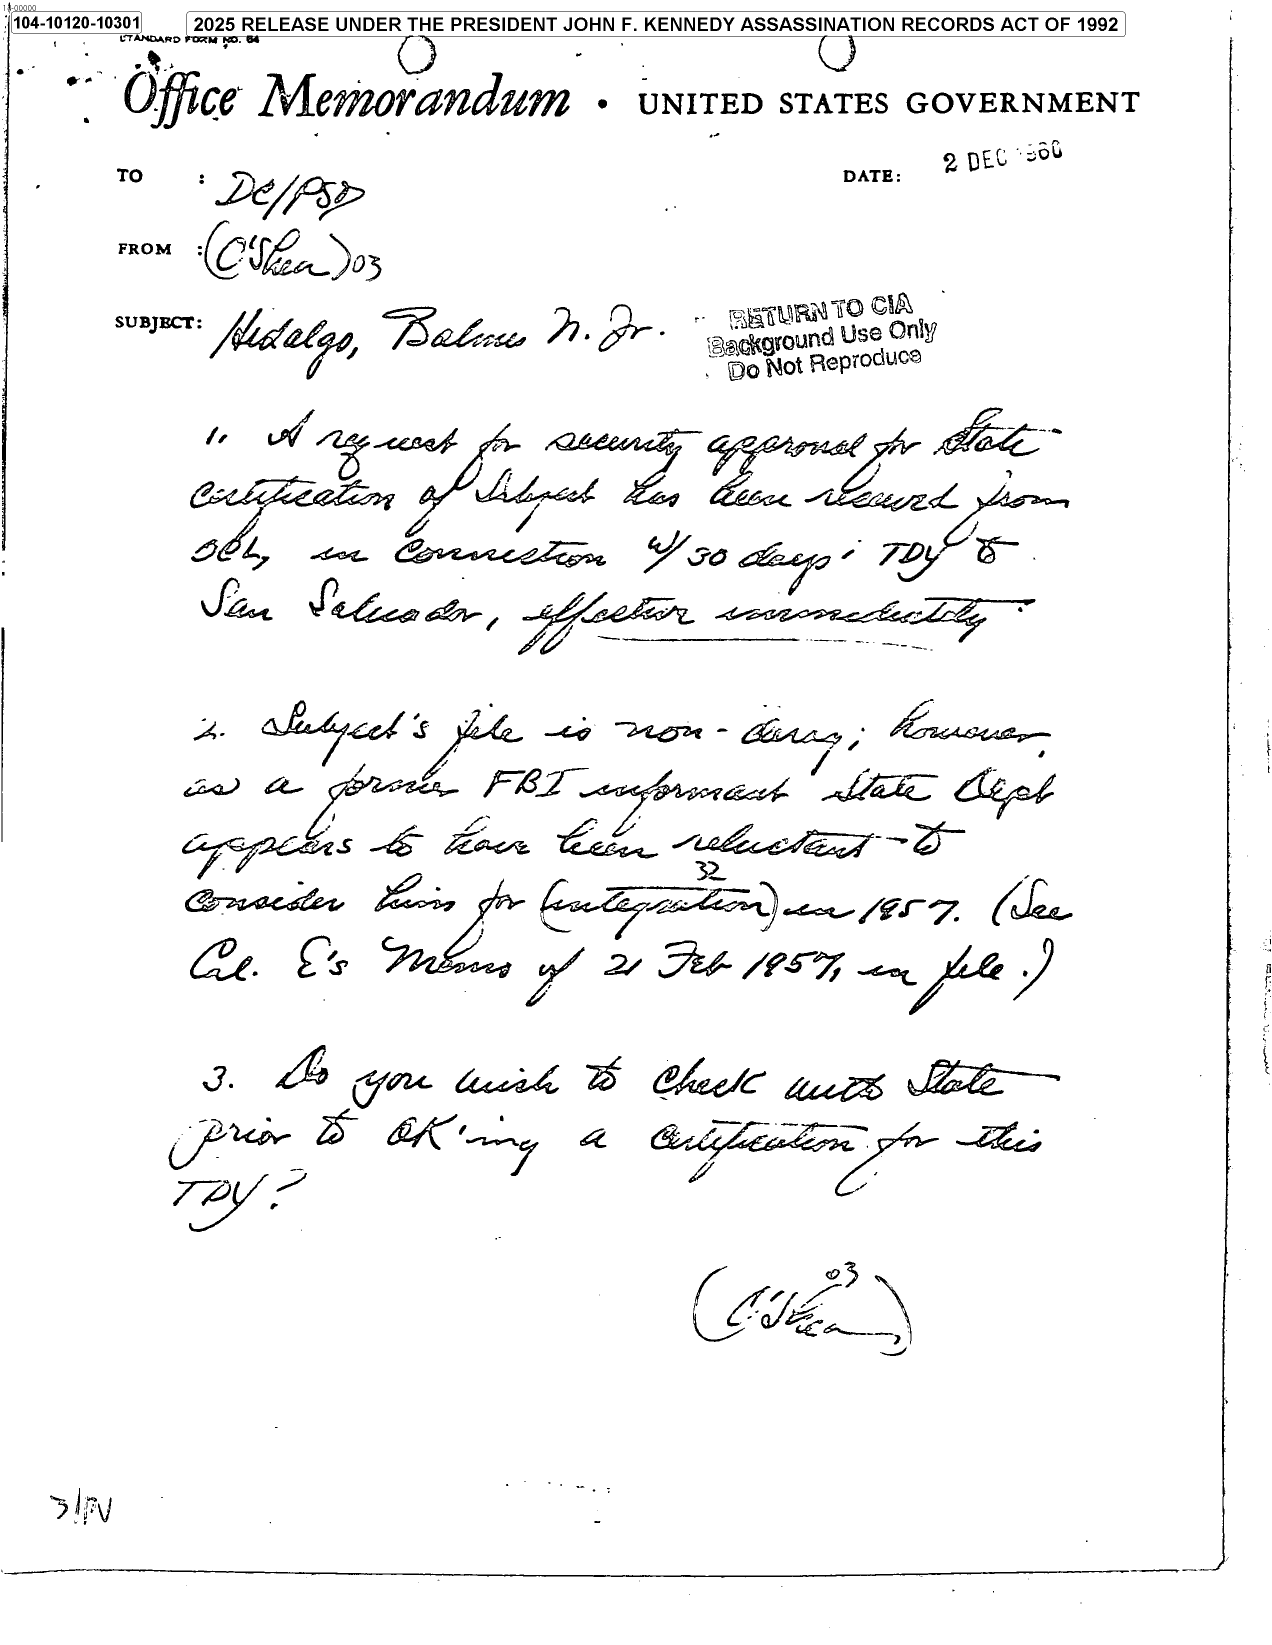 104-10120-10301
2025 RELEASE UNDER THE PRESIDENT JOHN F. KENNEDY ASSASSINATION RECORDS ACT OF 1992
STANDARD FORM NO. 64
Office Memorandum • UNITED STATES GOVERNMENT
TO : DC/PSD
DATE: 2 DEC 1960
FROM : (O'Shea) 03
SUBJECT: Hidalgo, Balmes N. Jr.
RETURN TO CIA
Background Use Only
Do Not Reproduce
1. A request for security approval for State
Certification of Subject has been received from
OCL, in connection w/ 30 days' TDY to
San Salvador, effective immediately.
2. Subject's file is non-derog; however,
as a former FBI informant State Dept
appears to have been reluctant to
32
consider him for (integration) in 1957. (See
Col. E's Memo of 21 Feb 1957, in file.)
3. Do you wish to check with State
prior to OK'ing a certification for this
TDY?
03
(O'Shea)